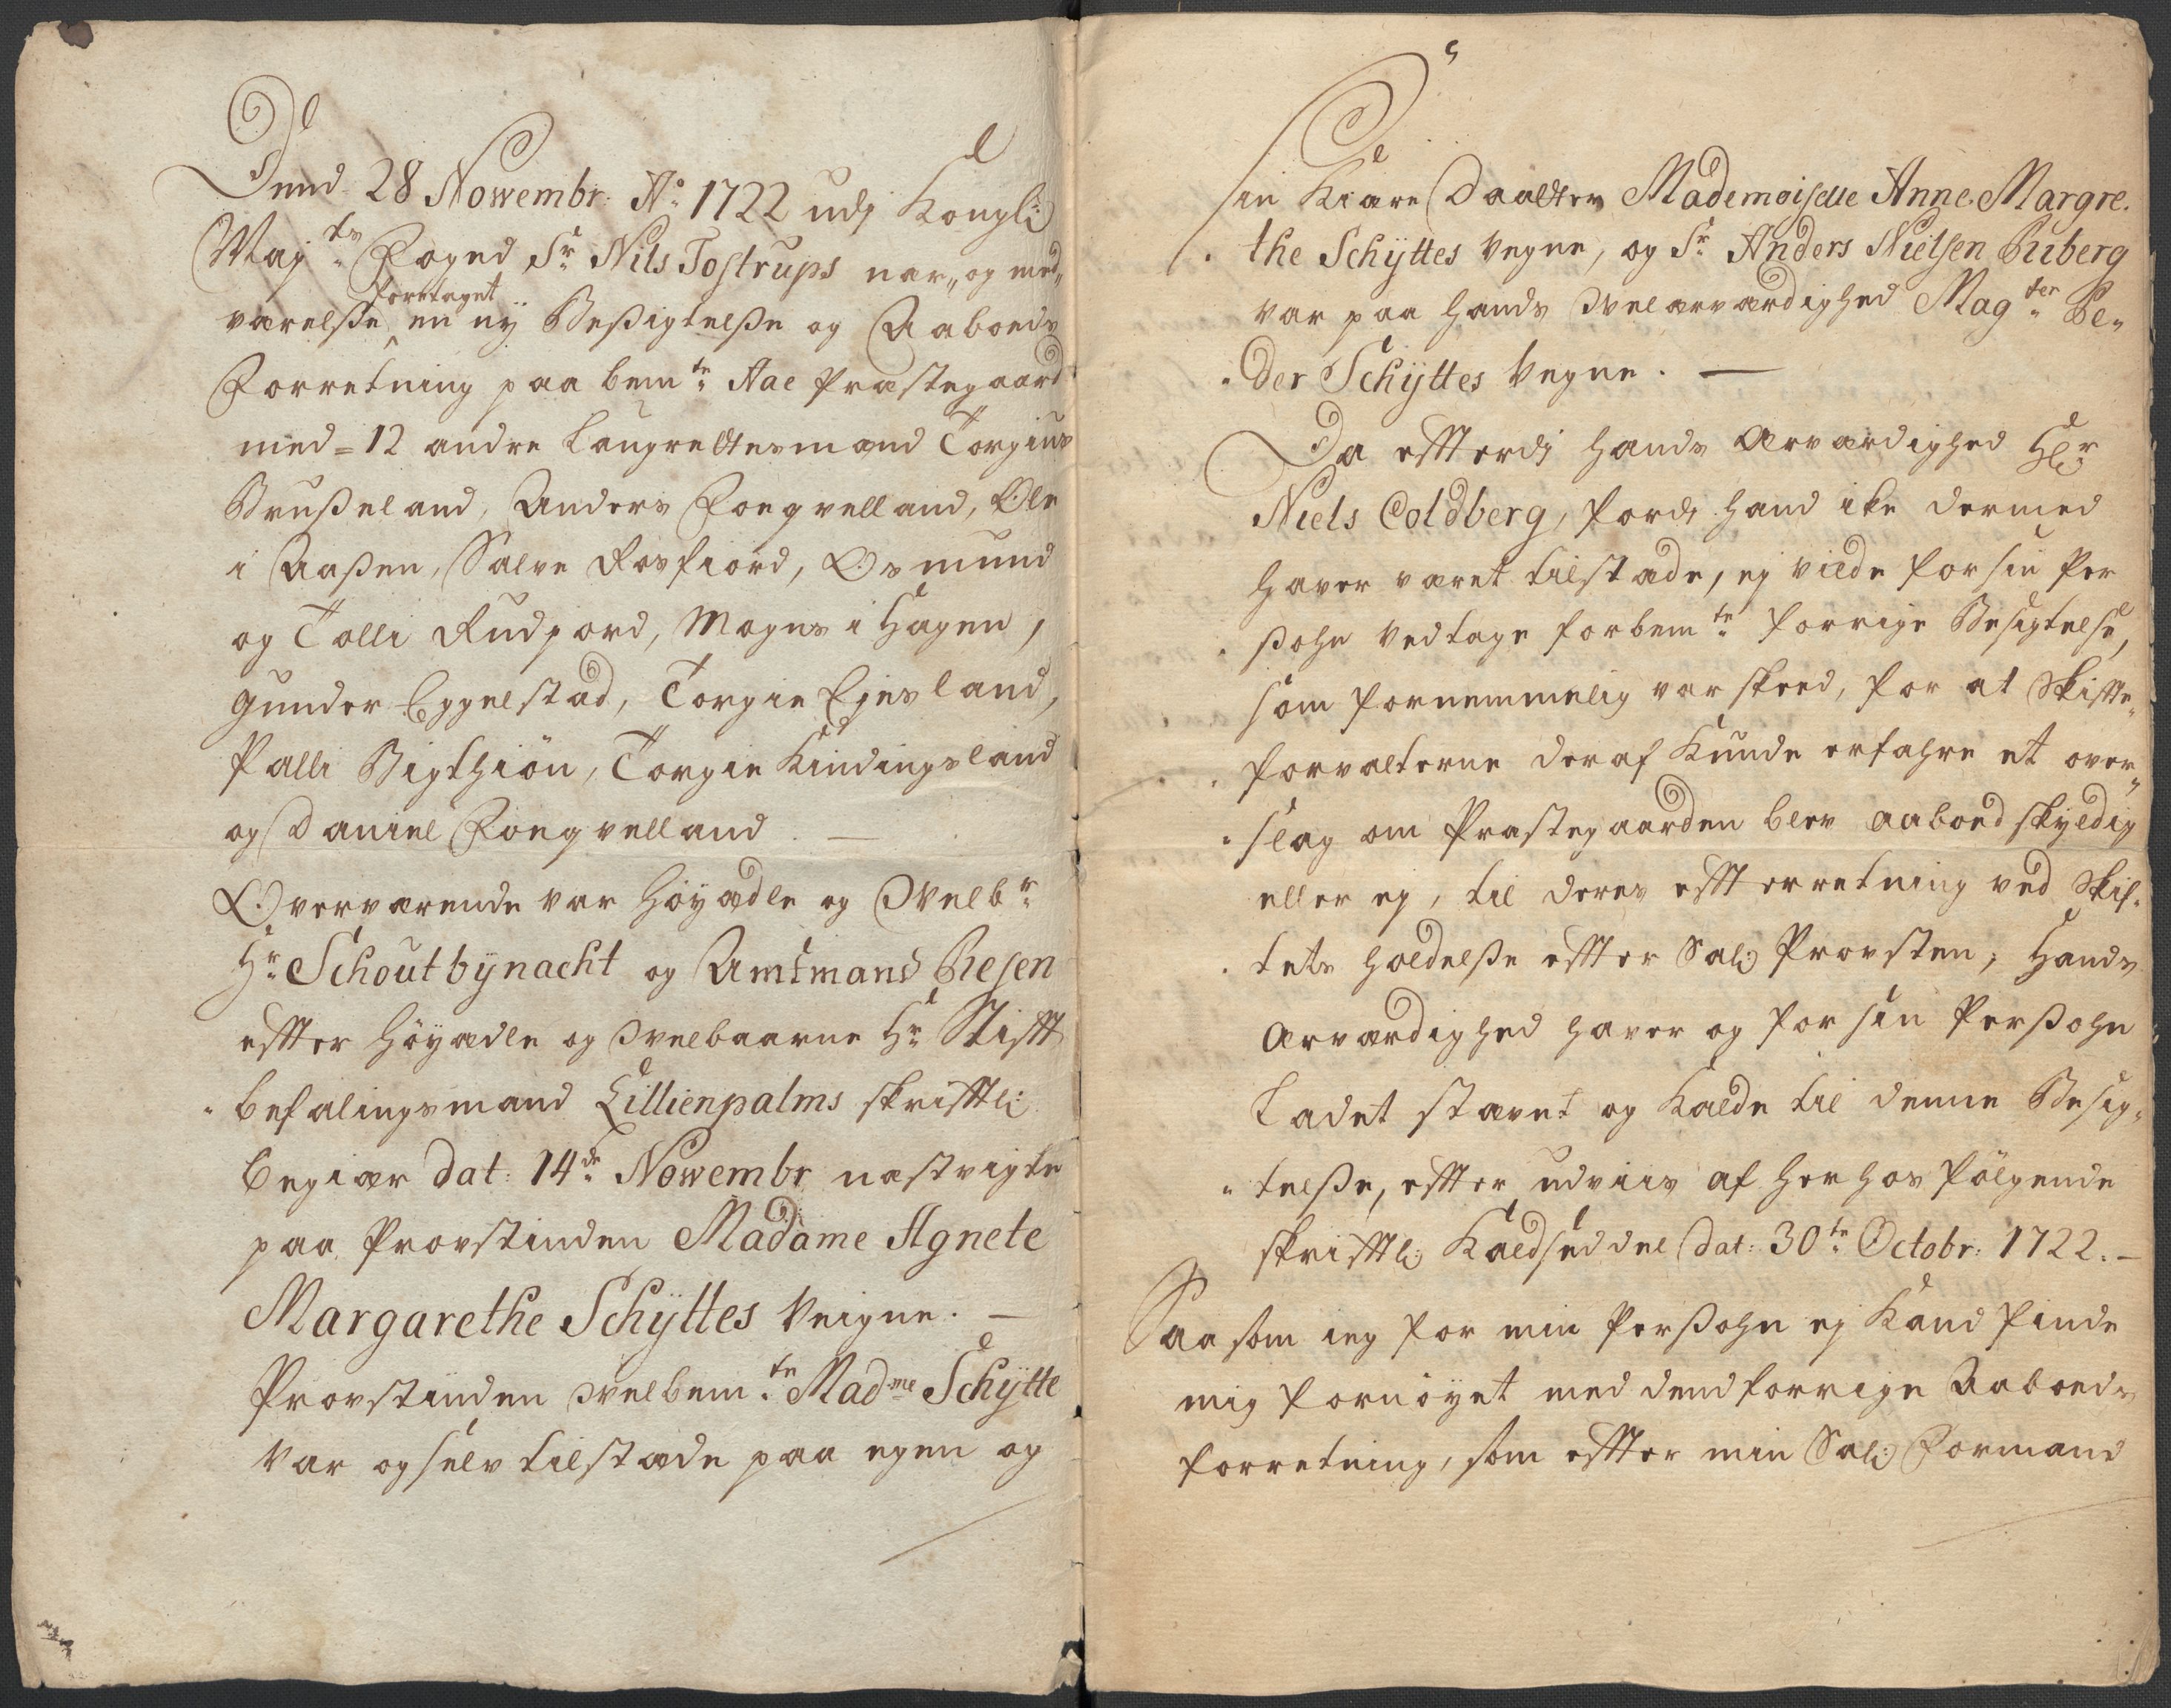 Dend 28 Nowembr: Ao 1722 udj Kongl:
Majts Foged Sr Nils Tostrups nær„ og med„
værelsse foretaget en nÿ Beßigtelße og Aaboeds
Forretning paa bemte Aae Præstegaard
med = 12 andre Laugrettesmænd Torgius
Brußeland, Anders Foeqvelland, Ole
i Aaßen, Salve Rosfiord, Osmund
og Tolli Rudjord, Mogns i Hagen,
Gunder Eggelstad, Torgie Ejesland,
Palli Bigthiön, Torgie Kindingsland
og Daniel Foeqvelland. —
Overværende var Höÿædle og Velbr
Hr Schoutbÿnacht og Amtmand Resen
effter Höÿædle og Velbaarne Hr Stifft
befalingsmand Lillienpalms skrifftl:
begiær dat: 14de Nowembr næstvigte
paa Provstinden Madame Agnete
Margarethe Schÿttes Veigne. —
Provstinden Velbemte Madme Schÿtte
var og selv tilstæde paa egen og
sin Kiære Daatter Mademoiselle Anne Margre.
the Schÿttes Vegne, og Sr Anders Nielsen Buberg
var paa hands Velærværdighed Magter Pe„
der Schÿttes Vegne. —
Da effterdj hands Ærværdighed Hr
Niels Coldberg, fordi hand ike dermed
haver været tilstæde, ej vilde for sin Per
ßohn vedtage forbemte forrige Besigtelse,
som fornemmelig var skeed, for at Skiffte„
forvalterne deraf Kunde erfahre et over„
slag om Præstegaarden blev aaboed skyldig
eller ej, til deres effterretning ved Skif„
tets holdelße effter Sal: Provsten; Hands
Ærværdighed haver og for sin Perßohn
Ladet stævnt og Kalde til denne Besig„
telße, effter udviis af herhos fölgende
skrifftl: Kaldseddel dat: 30te Octobr: 1722. —
Saa som ieg for min Perßohn ej Kand finde
mig fornöyet med dend forrige Aaboeds
forretning, som effter min Sal: Formand